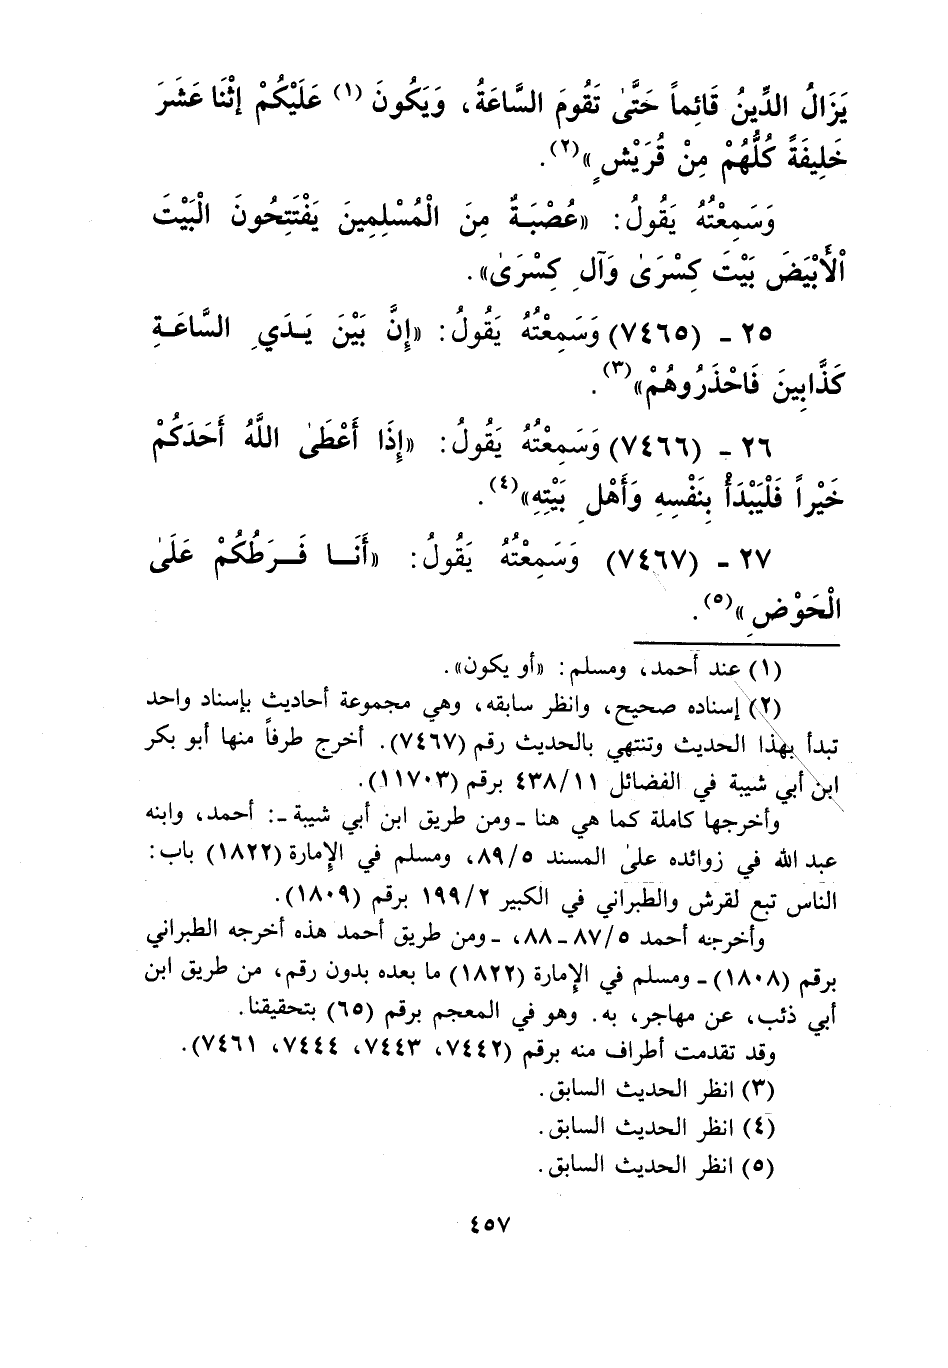 يَزَالُ الدِّينُ قَائِماً حَتَّىٰ تَقُومَ السَّاعَةُ، وَيَكُونَ (١) عَلَيْكُمْ إِثْنَا عَشَرَ
خَلِيفَةً كُلُّهُمْ مِنْ قُرَيْشٍ»(٢).
وَسَمِعْتُهُ يَقُولُ: «عُصْبَةٌ مِنَ الْمُسْلِمِينَ يَفْتَتِحُونَ الْبَيْتَ
الْأَبْيَضَ بَيْتَ كِسْرَىٰ وَآلِ كِسْرَىٰ».
٢٥ - (٧٤٦٥) وَسَمِعْتُهُ يَقُولُ: «إِنَّ بَيْنَ يَدَيِ السَّاعَةِ
كَذَّابِينَ فَاحْذَرُوهُمْ»(٣).
٢٦ - (٧٤٦٦) وَسَمِعْتُهُ يَقُولُ: «إِذَا أَعْطَىٰ اللَّهُ أَحَدَكُمْ
خَيْراً فَلْيَبْدَأْ بِنَفْسِهِ وَأَهْلِ بَيْتِهِ»(٤).
٢٧ - (٧٤٦٧) وَسَمِعْتُهُ يَقُولُ: «أَنَا فَرَطُكُمْ عَلَىٰ
الْحَوْضِ»(٥).
(١) عند أحمد، ومسلم: «أو يكون».
(٢) إسناده صحيح، وانظر سابقه، وهي مجموعة أحاديث بإسناد واحد
تبدأ بهذا الحديث وتنتهي بالحديث رقم (٧٤٦٧). أخرج طرفاً منها أبو بكر
ابن أبي شيبة في الفضائل ٤٣٨/١١ برقم (١١٧٠٣).
وأخرجها كاملة كما هي هنا - ومن طريق ابن أبي شيبة -: أحمد، وابنه
عبد الله في زوائده علىٰ المسند ٨٩/٥، ومسلم في الإمارة (١٨٢٢) باب:
الناس تبع لقرش والطبراني في الكبير ١٩٩/٢ برقم (١٨٠٩).
وأخرجه أحمد ٨٧/٥ - ٨٨، - ومن طريق أحمد هذه أخرجه الطبراني
برقم (١٨٠٨) - ومسلم في الإمارة (١٨٢٢) ما بعده بدون رقم، من طريق ابن
أبي ذئب، عن مهاجر، به. وهو في المعجم برقم (٦٥) بتحقيقنا.
وقد تقدمت أطراف منه برقم (٧٤٤٢، ٧٤٤٣، ٧٤٤٤، ٧٤٦١).
(٣) انظر الحديث السابق.
(٤) انظر الحديث السابق.
(٥) انظر الحديث السابق.
٤٥٧